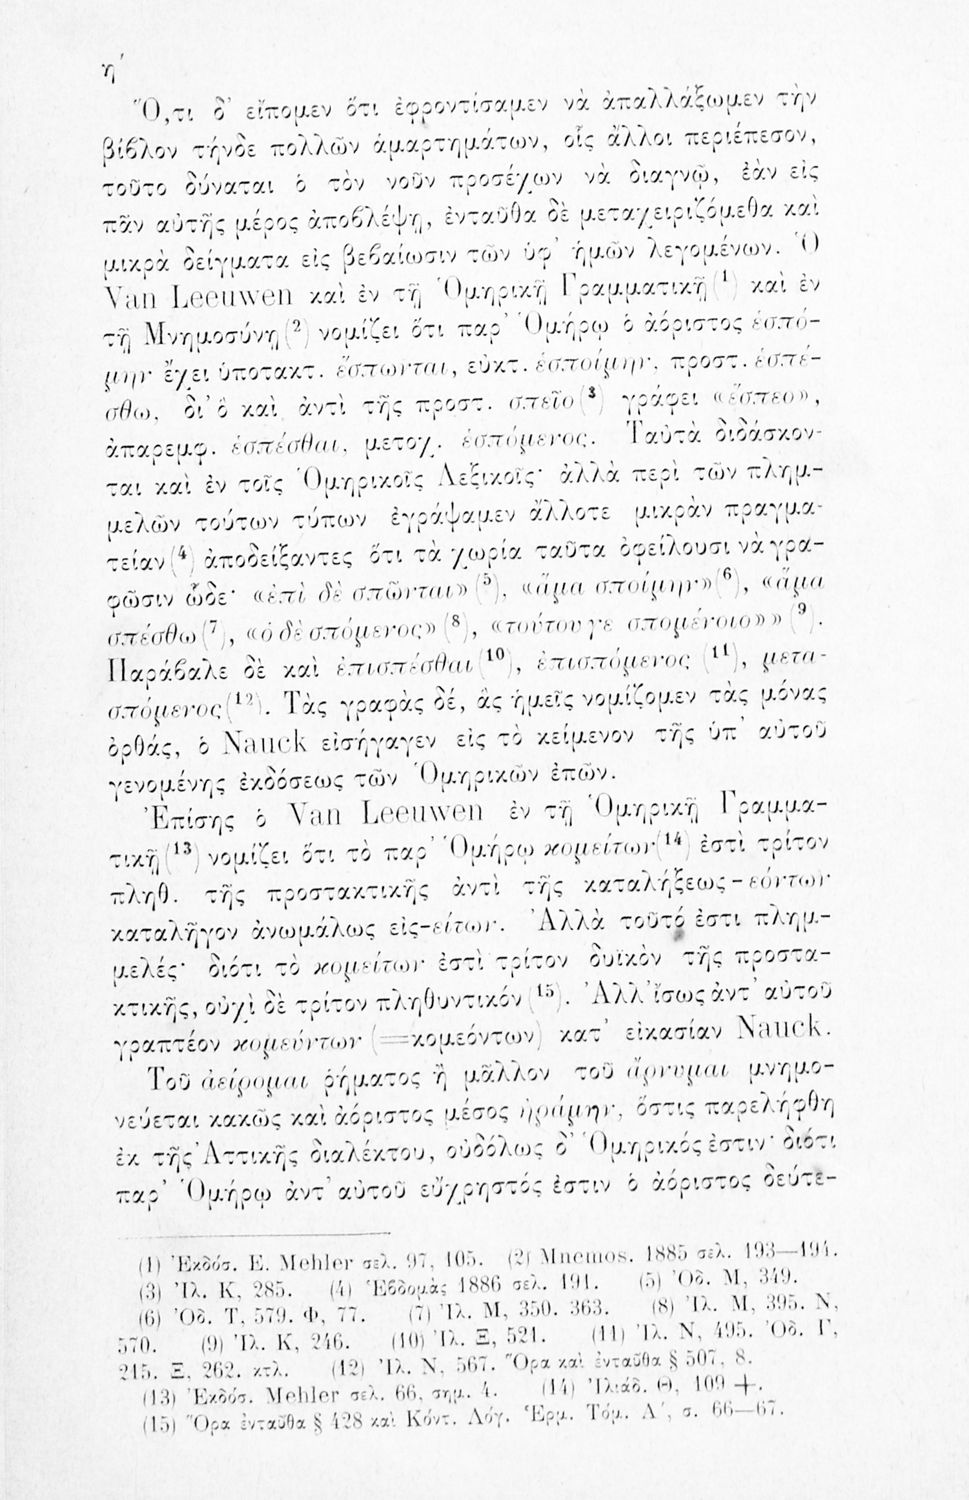 η΄
Ὅ,τι δ' εἴπομεν ὅτι ἐφροντίσαμεν νὰ ἀπαλλάξωμεν τὴν
βίβλον τήνδε πολλῶν ἁμαρτημάτων, οἷς ἄλλοι περιέπεσον,
τοῦτο δύναται ὁ τὸν νοῦν προσέχων νὰ διαγνῷ, ἐὰν εἰς
πᾶν αὐτῆς μέρος ἀποβλέψῃ, ἐνταῦθα δὲ μεταχειριζόμεθα καὶ
μικρὰ δείγματα εἰς βεβαίωσιν τῶν ὑφ' ἡμῶν λεγομένων. Ὁ
Van Leeuwen καὶ ἐν τῇ Ὁμηρικῇ Γραμματικῇ(1) καὶ ἐν
τῇ Μνημοσύνῃ(2) νομίζει ὅτι παρ' Ὁμήρῳ ὁ ἀόριστος ἑσπό-
μην ἔχει ὑποτακτ. ἕσπωνται, εὐκτ. ἑσποίμην, προστ. ἑσπέ-
σθω, δι' ὃ καὶ ἀντὶ τῆς προστ. σπεῖο(3) γράφει «ἕσπεο»,
ἀπαρεμφ. ἑσπέσθαι, μετοχ. ἑσπόμενος. Ταὐτὰ διδάσκον-
ται καὶ ἐν τοῖς Ὁμηρικοῖς Λεξικοῖς· ἀλλὰ περὶ τῶν πλημ-
μελῶν τούτων τύπων ἐγράψαμεν ἄλλοτε μικρὰν πραγμα-
τείαν(4) ἀποδείξαντες ὅτι τὰ χωρία ταῦτα ὀφείλουσι νὰ γρα-
φῶσιν ὧδε· «ἐπὶ δὲ σπῶνται»(5), «ἅμα σποίμην»(6), «ἅμα
σπέσθω(7), «ὁ δὲ σπόμενος»(8), «τούτου γε σπομένοιο»»(9).
Παράβαλε δὲ καὶ ἐπισπέσθαι(10), ἐπισπόμενος (11), μετα-
σπόμενος(12). Τὰς γραφὰς δέ, ἃς ἡμεῖς νομίζομεν τὰς μόνας
ὀρθάς, ὁ Nauck εἰσήγαγεν εἰς τὸ κείμενον τῆς ὑπ' αὐτοῦ
γενομένης ἐκδόσεως τῶν Ὁμηρικῶν ἐπῶν.
Ἐπίσης ὁ Van Leeuwen ἐν τῇ Ὁμηρικῇ Γραμμα-
τικῇ(13) νομίζει ὅτι τὸ παρ' Ὁμήρῳ κομείτων(14) ἐστὶ τρίτον
πληθ. τῆς προστακτικῆς ἀντὶ τῆς καταλήξεως -εόντων
καταλῆγον ἀνωμάλως εἰς -είτων. Ἀλλὰ τοῦτό ἐστι πλημ-
μελές· διότι τὸ κομείτων ἐστὶ τρίτον δυϊκὸν τῆς προστα-
κτικῆς, οὐχὶ δὲ τρίτον πληθυντικόν(15). Ἀλλ' ἴσως ἀντ' αὐτοῦ
γραπτέον κομεύντων (=κομεόντων) κατ' εἰκασίαν Nauck.
Τοῦ ἀείρομαι ῥήματος ἢ μᾶλλον τοῦ ἄρνυμαι μνημο-
νεύεται κακῶς καὶ ἀόριστος μέσος ἠράμην, ὅστις παρελήφθη
ἐκ τῆς Ἀττικῆς διαλέκτου, οὐδόλως δ' Ὁμηρικός ἐστιν· διότι
παρ' Ὁμήρῳ ἀντ' αὐτοῦ εὔχρηστός ἐστιν ὁ ἀόριστος δεύτε-
(1) Ἐκδόσ. E. Mehler σελ. 97, 105. (2) Mnemos. 1885 σελ. 193—194.
(3) Ἰλ. Κ, 285. (4) Ἑβδομὰς 1886 σελ. 191. (5) Ὀδ. Μ, 349.
(6) Ὀδ. Τ, 579. Φ, 77. (7) Ἰλ. Μ, 350. 363. (8) Ἰλ. Μ, 395. Ν,
570. (9) Ἰλ. Κ, 246. (10) Ἰλ. Ξ, 521. (11) Ἰλ. Ν, 495. Ὀδ. Γ,
215. Ξ, 262. κτλ. (12) Ἰλ. Ν, 567. Ὅρα καὶ ἐνταῦθα § 507, 8.
(13) Ἐκδόσ. Mehler σελ. 66, σημ. 4. (14) Ἰλιάδ. Θ, 109 +.
(15) Ὅρα ἐνταῦθα § 428 καὶ Κόντ. Λόγ. Ἑρμ. Τόμ. Α΄, σ. 66—67.